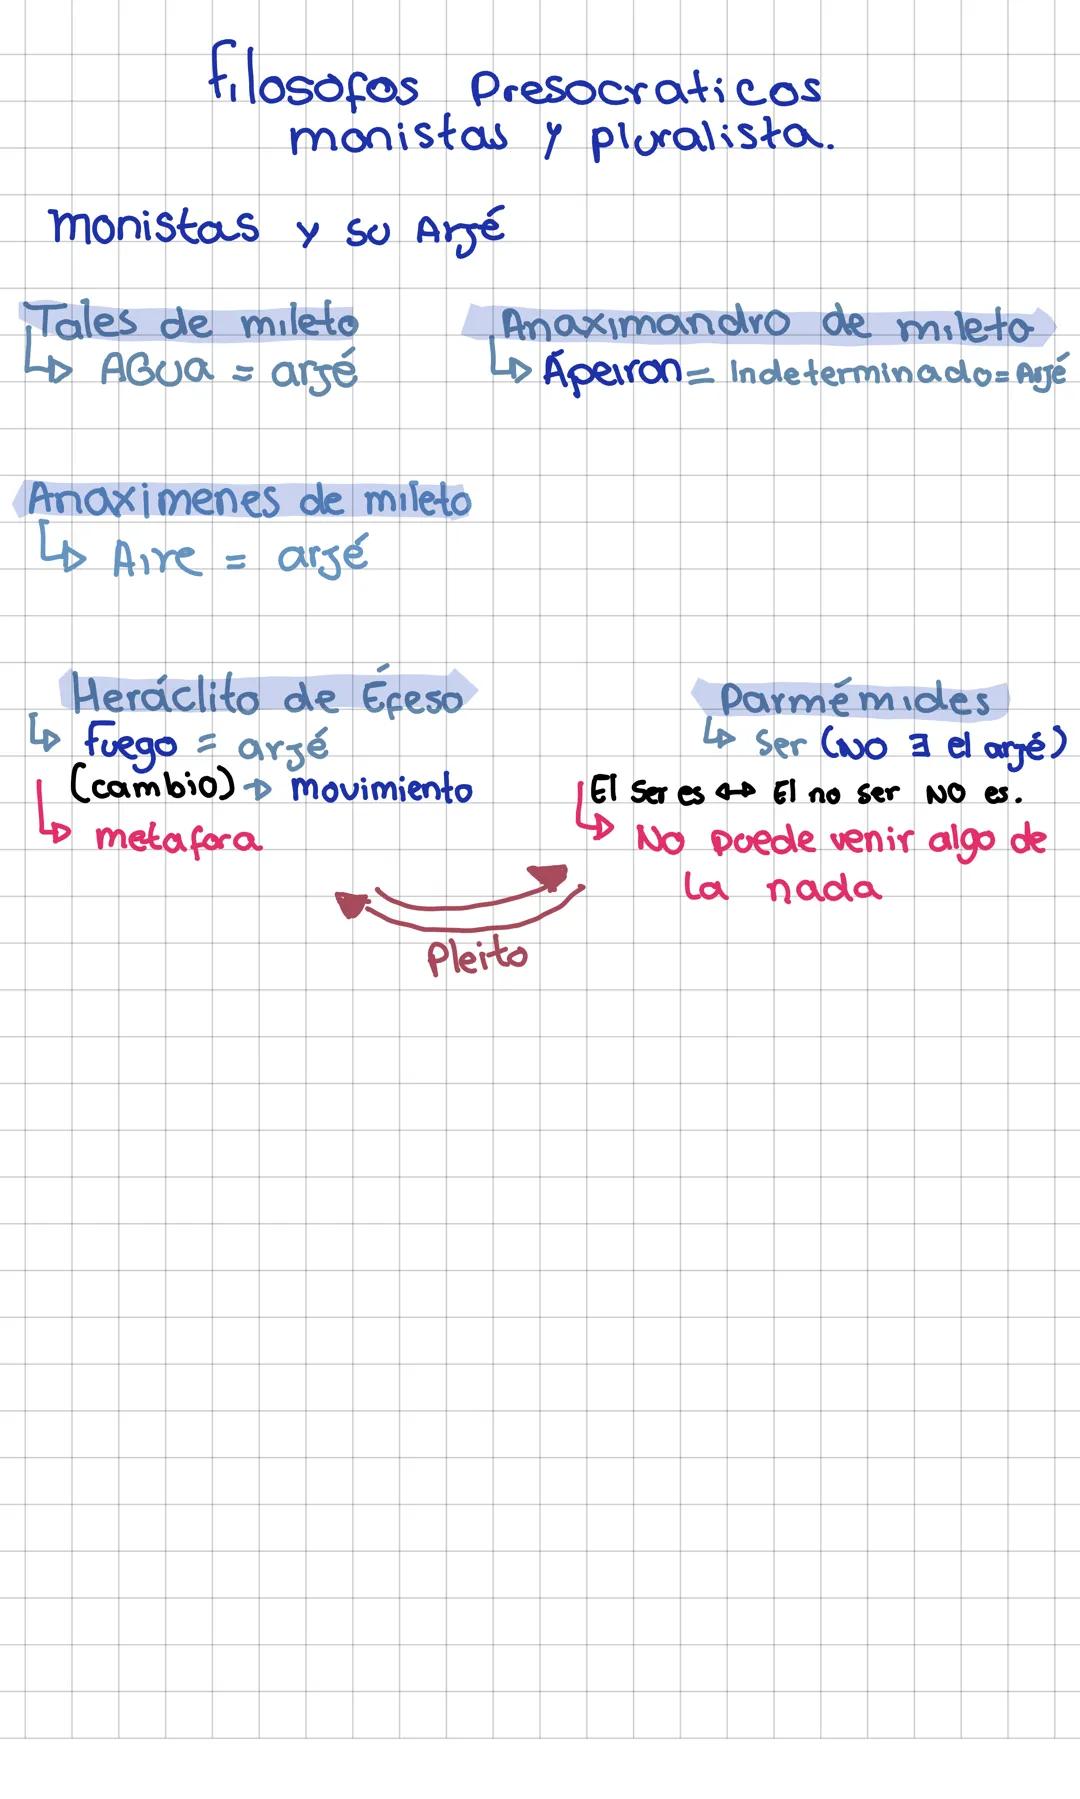 filosofos Presocraticos
monistas y pluralista.
monistas y su Arjé
Tales de mileto
AGUA = arjé
Anaximandro de mileto
Ápeiron = Indeterminado = Arjé
Anaximenes de mileto
Aire = arjé
Heráclito de Éfeso
fuego = arjé
(cambio) → movimiento
metafora
Parmémides
Ser (NO ∃ el arjé)
El Ser es ↔ El no ser NO es.
No puede venir algo de
la nada
Pleito